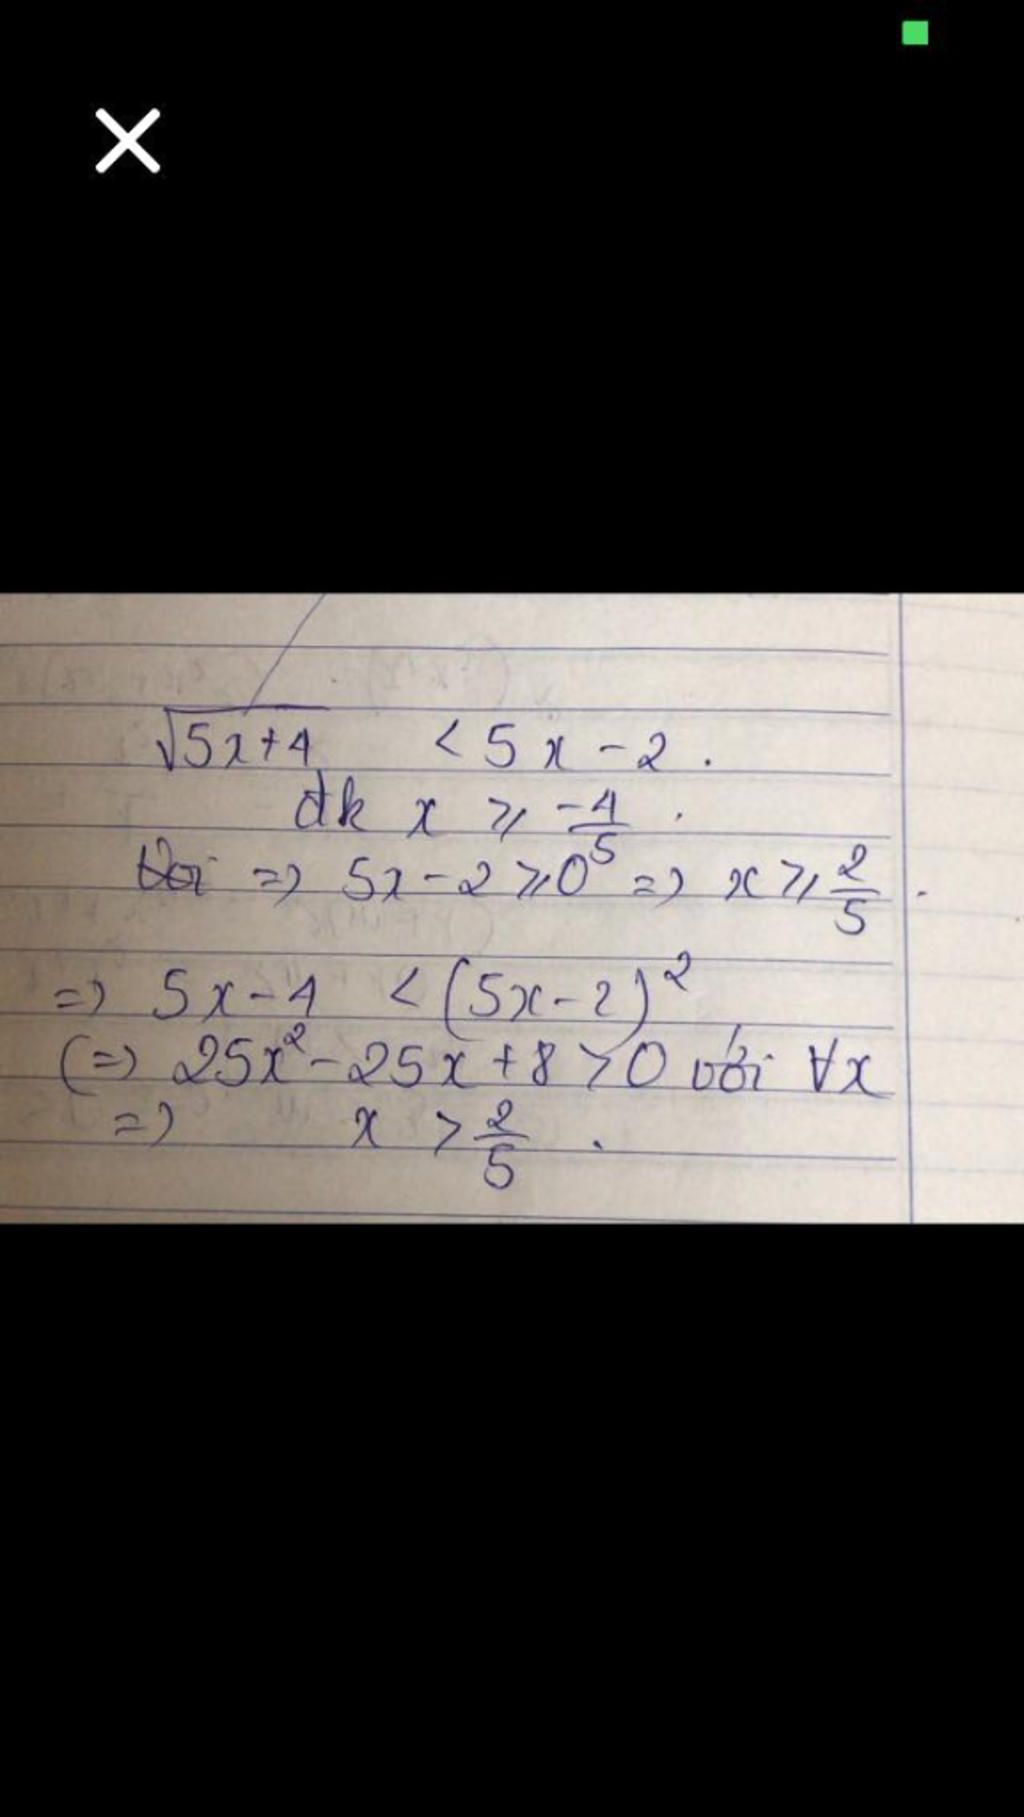 √5x+4 < 5x - 2 .
đk x ⩾ -4/5 .
=> 5x - 2 ⩾ 0 => x ⩾ 2/5 .
=> 5x - 4 < (5x - 2)²
(=> 25x² - 25x + 8 > 0 với ∀x
=> x > 2/5 .